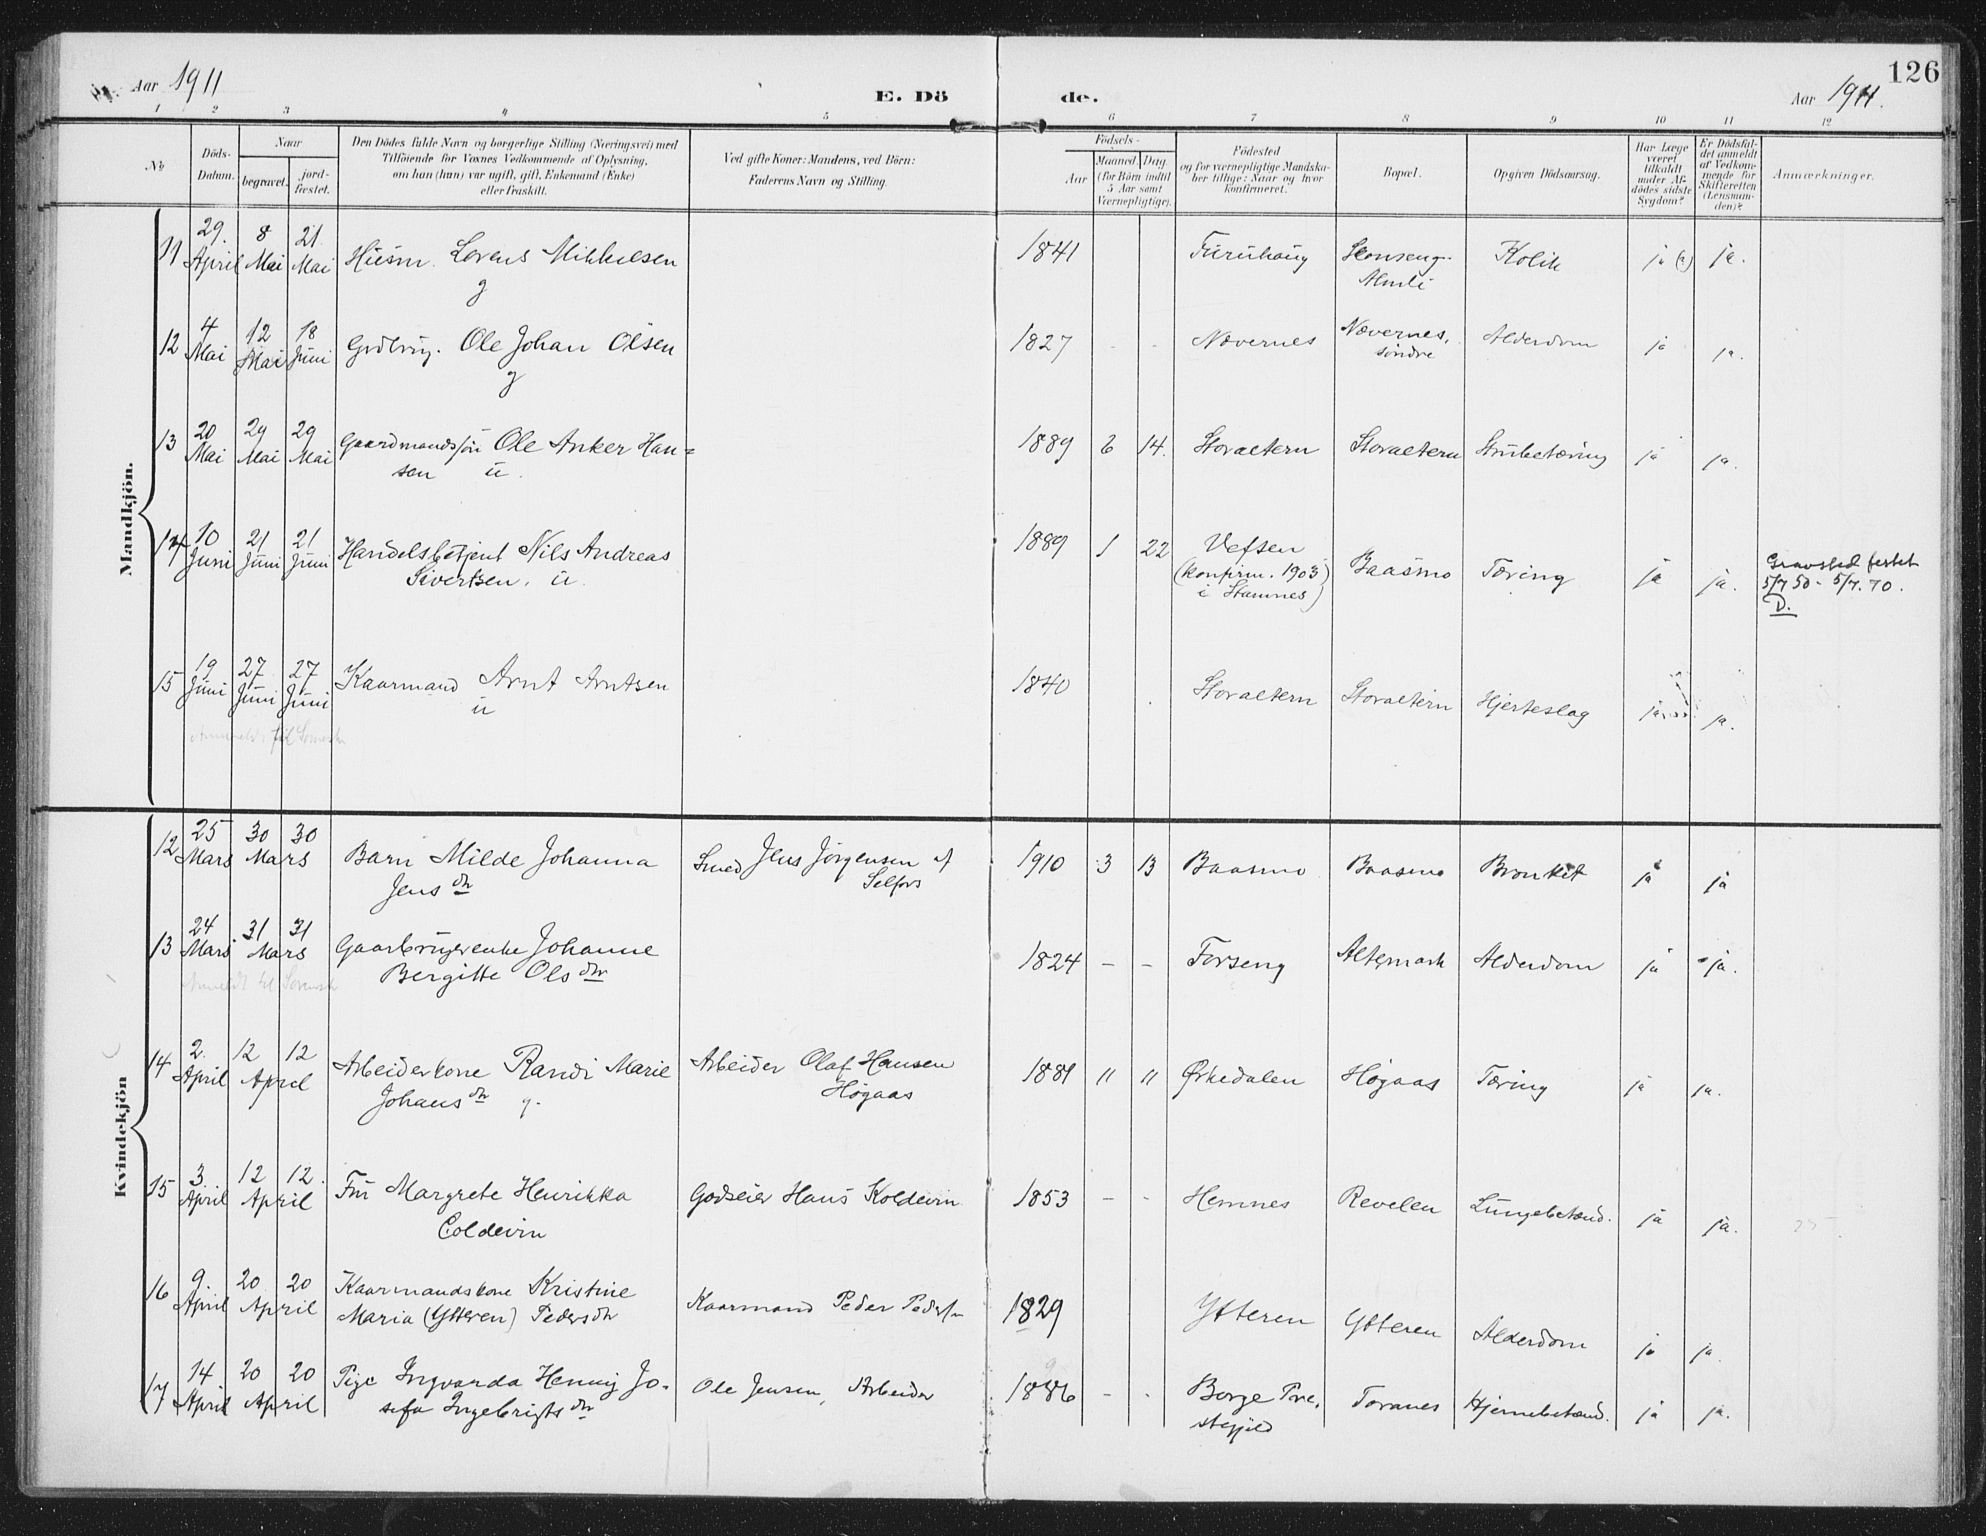 Aar 1911
E. Dö
de.
Aar 1911.
126
1 2 3 4 5 6 7 8 9 10 11 12
No
Döds-
Datum.
Naar
begravet.
jord-
fæstet.
Den Dödes fulde Navn og borgerlige Stilling (Næringsvei) med
Tilföiende for Voxnes Vedkommende af Oplysning,
om han (hun) var ugift, gift, Enkemand (Enke)
eller fraskilt.
Ved gifte Koner: Mandens, ved Börn:
Faderens Navn og Stilling.
Födsels-
Aar
Maaned. Dag.
(for Börn indtil
5 Aar samt
Værnepligtige).
Födested
og for værnepligtige Mandska-
ber tillige: Naar og hvor
konfirmeret.
Bopæl.
Opgiven Dödsaarsag.
Har Læge
været
tilkaldt
under Af-
dödes sidste
Sygdom?
Er Dödsfal-
det anmeldt
af Vedkom-
mende for
Skifteretten
(Lensman-
den)?
Anmærkninger.
Mandkjön.
11 29. April 8 Mai 21 Mai Husm. Lorens Mikkelsen g 1841 Furuhaug Stonseng- Almli Kolik ja ja.
12 4 Mai 12 Mai 18 Juni Grdbrug. Ole Johan Olsen g 1827 - - Nævernes Nævernes, søndre Alderdom ja ja.
13 20 Mai 29 Mai 29 Mai Gaardmandssøn Ole Anker Han=
sen u. 1889 6 14. Storaltern Storaltern Strubetæring ja ja.
14 10 Juni 21 Juni 21 Juni Handelsbetjent Nils Andreas
Sivertsen. u. 1889 1 22 Vefsen
(konfirm. 1903
i Stamnes) Baasmo Tæring ja ja. Gravsted festet
5/7 50 - 5/7. 70.
D.
15 19 Juni 27 Juni 27 Juni Kaarmand Arnt Arntsen
u 1840 Storaltern Storaltern Hjerteslag ja ja.
Kvindekjön
12 25 Mars 30 30 Mars Barn Milde Johanna
Jensdtr Smed Jens Jørgensen af
Selfors 1910 3 13 Baasmo Baasmo Bronkit ja ja
13 24 Mars 31 31 Mars Gaarbrugerenke Johanne
Bergitte Olsdtr 1824 - - Forseng Altermark Alderdom ja ja.
14 2. April 12 12 April Arbeiderkone Randi Marie
Johansdtr g. Arbeider Olaf Hansen
Høgaas 1881 11 11 Ørkedalen Høgaas Tæring ja ja.
15 3. April 12 12. April Fru Margrete Henrikka
Coldevin Godseier Hans Koldevin 1853 - - Hemnes Revelen Lungebetænd. ja ja.
16 9. April 20 20 April Kaarmandskone Kristine
Maria (Ytteren) Pedersdtr Kaarmand Peder Peders̄n 1829 Ytteren Ytteren Alderdom ja ja.
17 14 April 20 20 April Pige Ingvarda Henny Jo-
sefa Ingebrigtsdtr Ole Jensen, Arbeider 1886 - - Borge Præ-
stegjeld Toranes Hjernebetænd. ja ja.